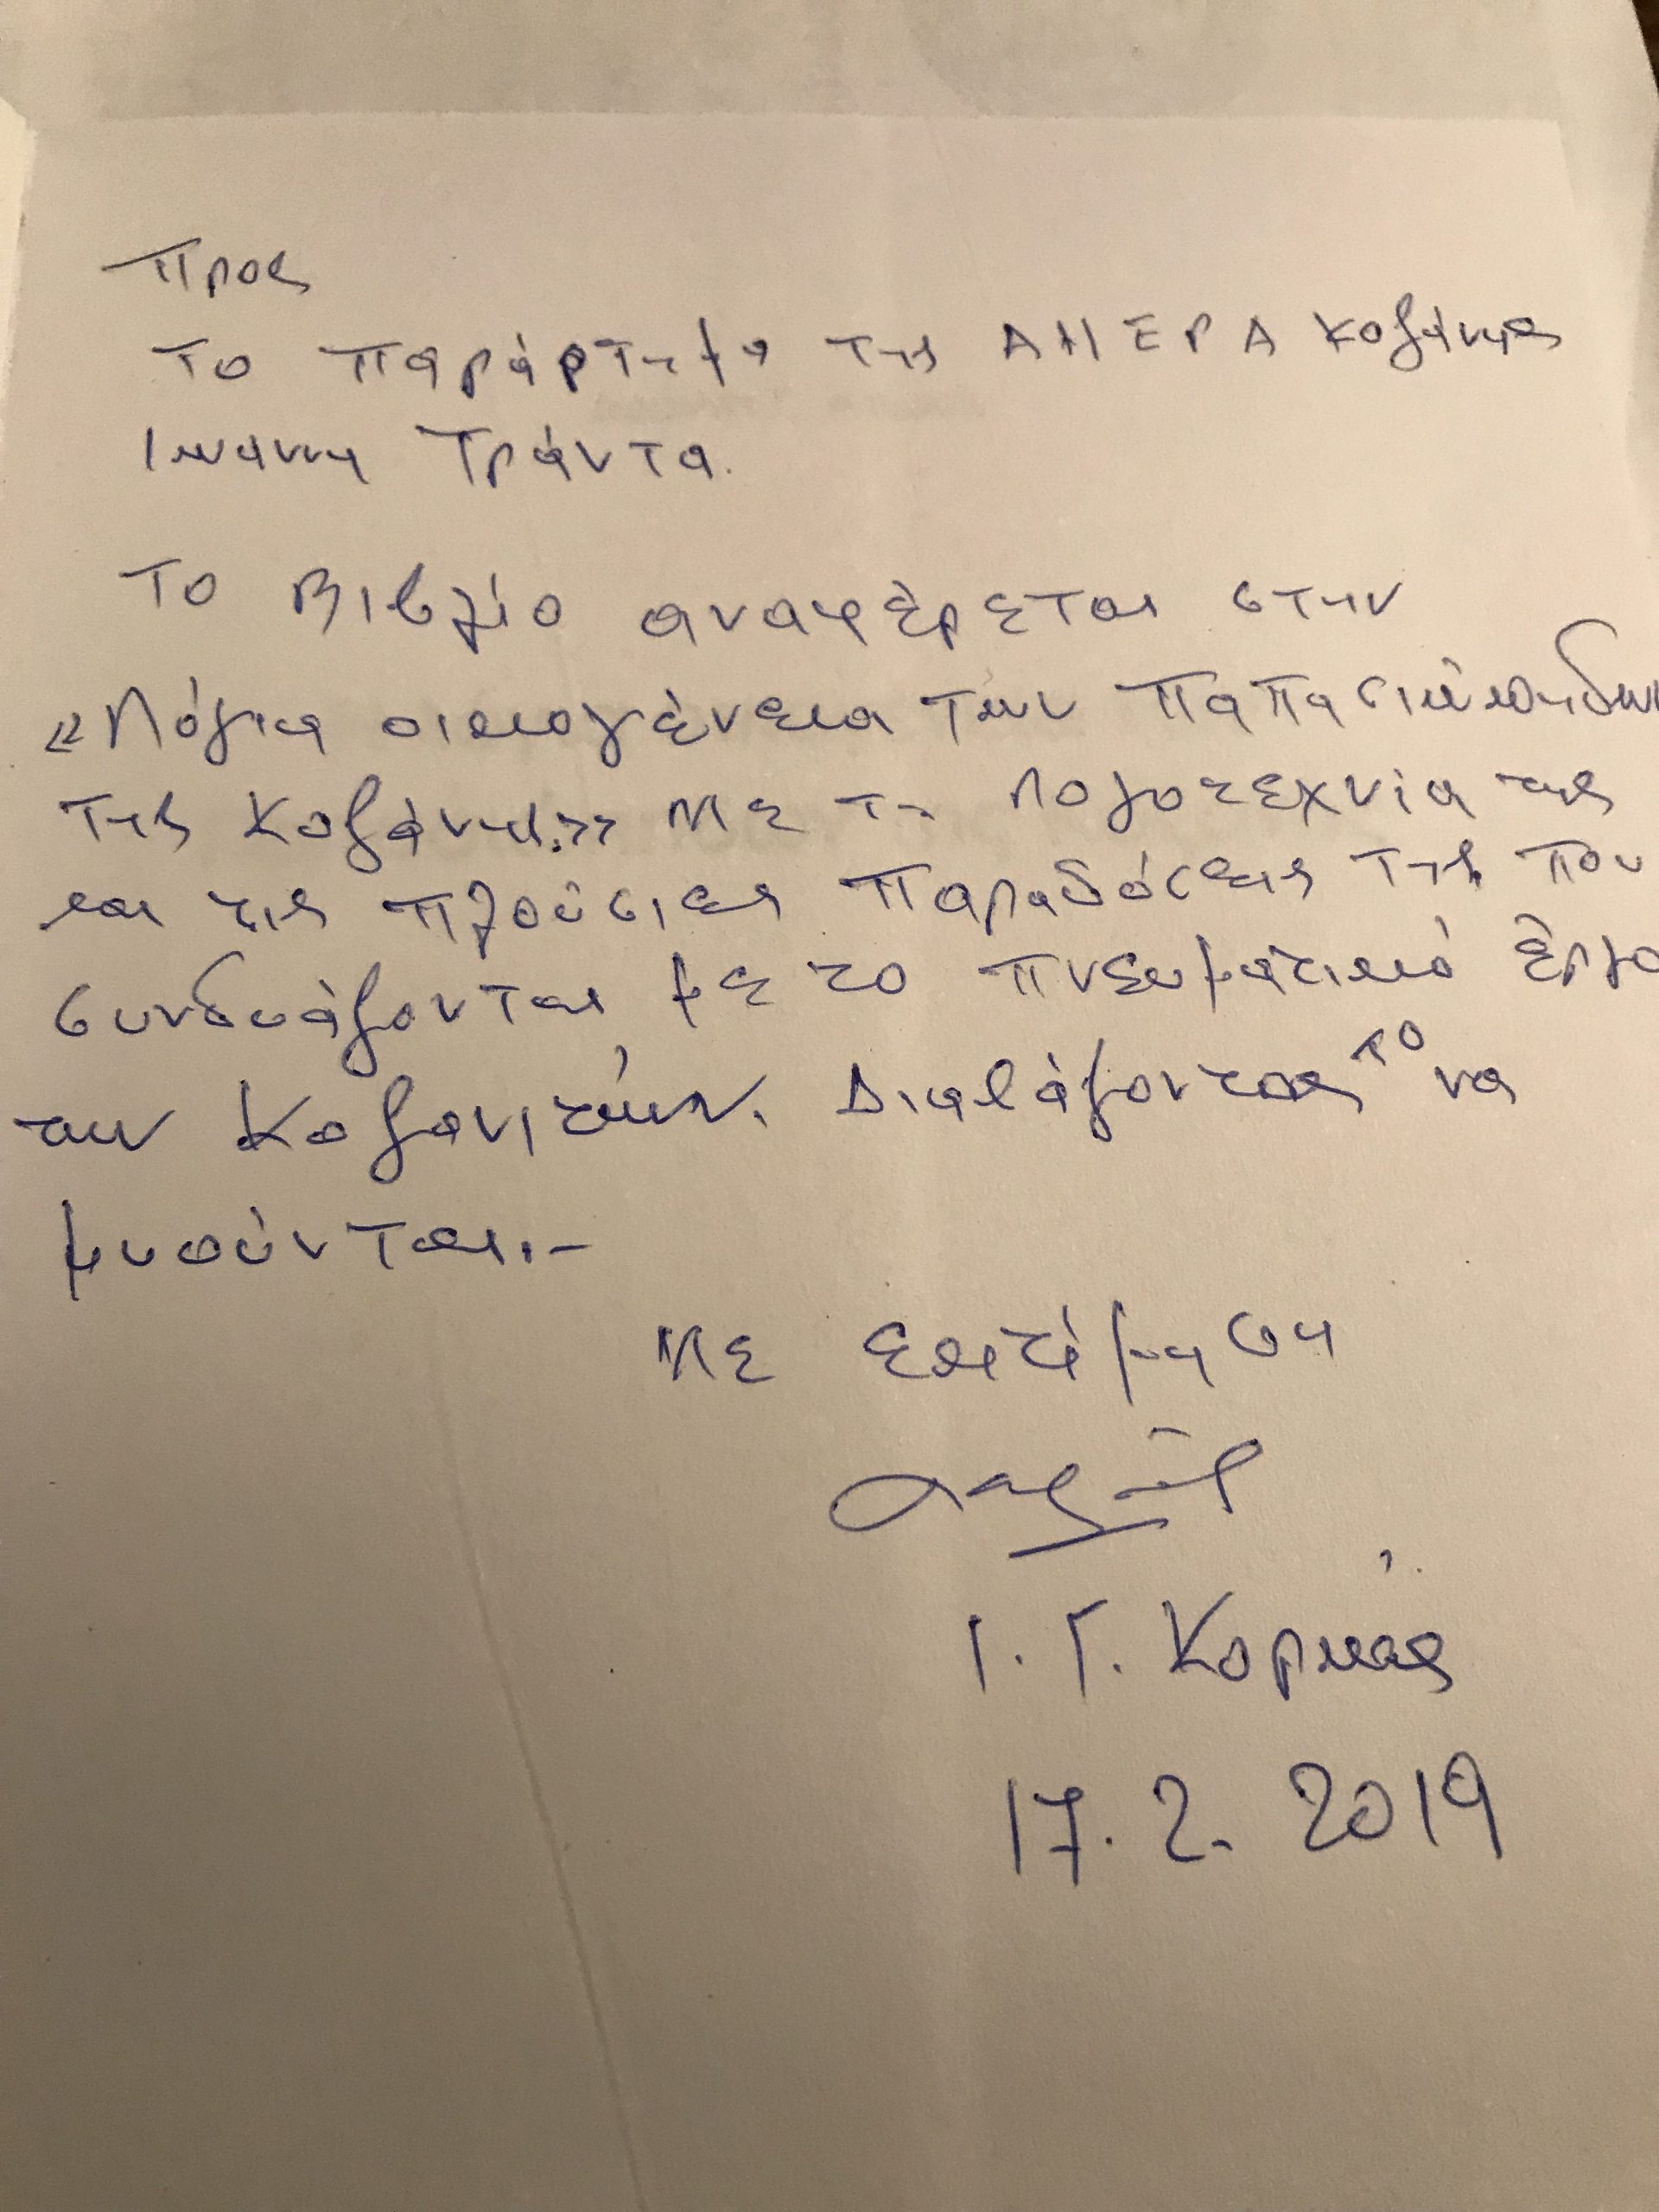 Προς
Το παράρτημα της ΑΗΕΡΑ Κοζάνης
Ιωαννη Τράντα.
Το Βιβλίο αναφέρεται στην
«Λόγια οικογένεια των
της Κοζάνης.» Με τη Λογοτεχνία της
και τις πλούσιες παραδόσεις της που
συνδυάζονται με το πνευματικό έργο
των Κοζανιτών. Διαβάζοντας το να
μυούνται.-
Με εκτίμηση
Ι. Γ. Κορκάς
17. 2. 2019